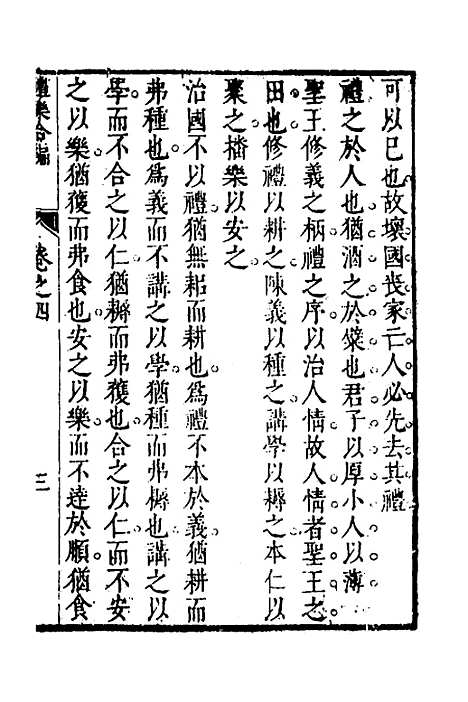 可以已也故壞國喪家亡人必先去其禮
禮之於人也猶酒之於糵也君子以厚小人以薄
聖王修義之柄禮之序以治人情故人情者聖王之
田也修禮以耕之陳義以種之講學以耨之本仁以
聚之播樂以安之
治國不以禮猶無耜而耕也爲禮不本於義猶耕而
弗種也爲義而不講之以學猶種而弗耨也講之以
學而不合之以仁猶耨而弗穫也合之以仁而不安
之以樂猶穫而弗食也安之以樂而不達於順猶食
禮樂合編
卷之四
三